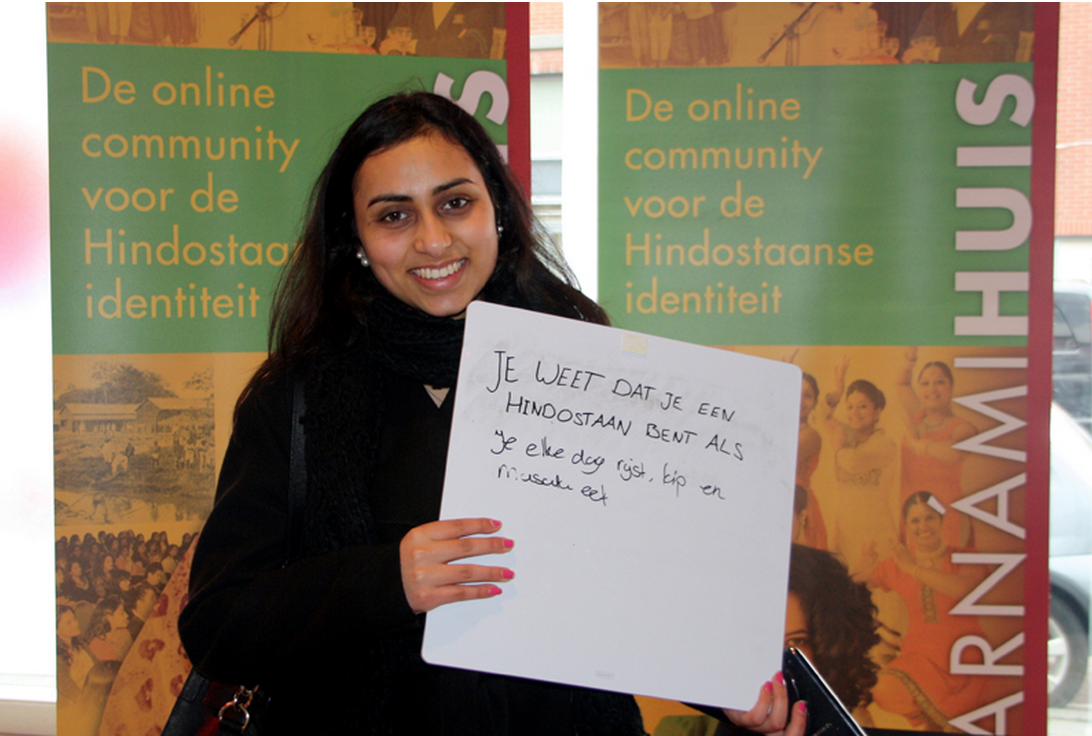 De online
community
voor de
Hindostaa
identiteit
S
De online
community
voor de
Hindostaanse
identiteit
ARNÁMIHUIS
JE WEET DAT JE EEN
HINDOSTAAN BENT ALS
Je elke dag rijst, kip en
masala eet